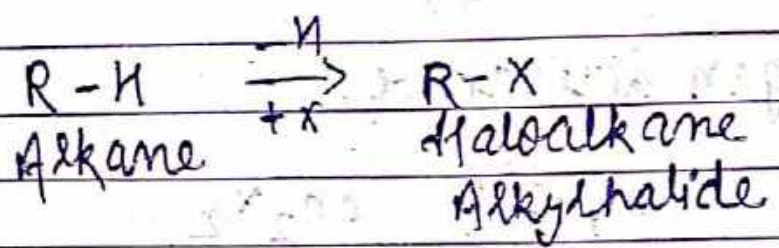 -H
R-H ⟶ R-X
+X
Alkane Haloalkane
Alkylhalide